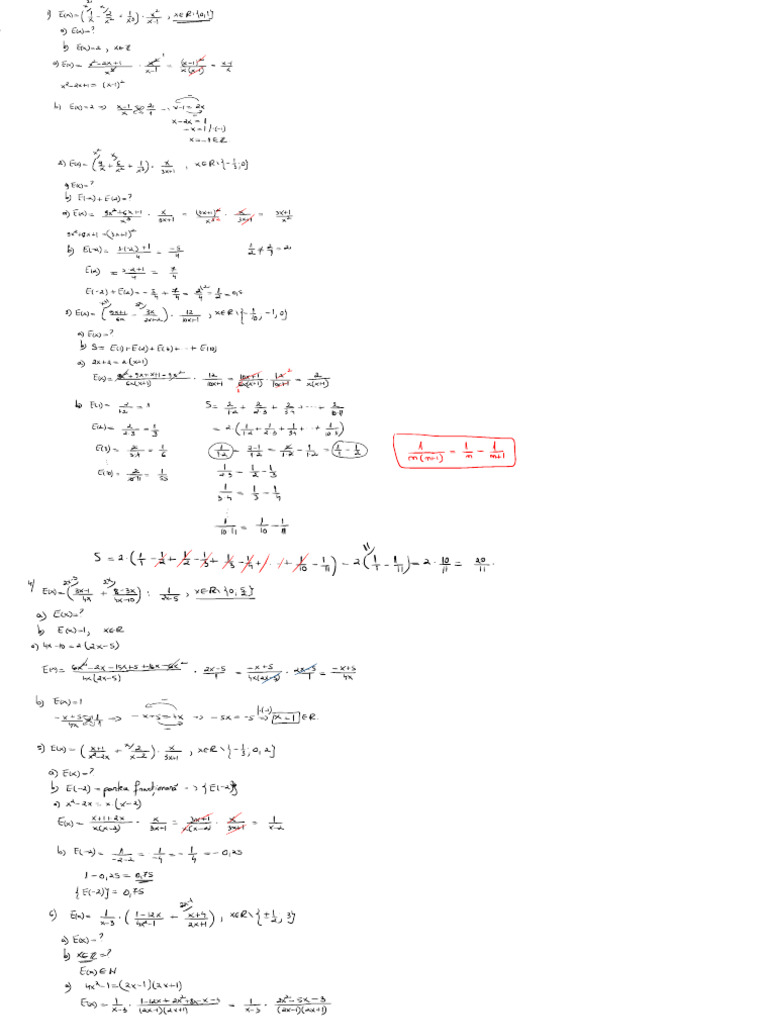 1) E(x)=(1/x - 2/x² + 1/x³) · x²/x-1 , x∈R\{0,1}
a) E(x)=?
b) E(x)=2 , x∈R
a) E(x)= x²-2x+1/x³ · x²/x-1 = (x-1)²/x(x-1) = x-1/x
x²-2x+1=(x-1)²
b) E(x)=2 => x-1/x = 2/1 → x-1=2x
x-2x=1
-x=1 |·(-1)
x=-1∈R
2) E(x)=(9/x + 6/x² + 1/x³) · x/3x+1 , x∈R\{-1/3, 0}
a) E(x)=?
b) E(-2)+E(2)=?
a) E(x)= 9x²+6x+1/x³ · x/3x+1 = (3x+1)²/x³ · x/3x+1 = 3x+1/x²
9x²+6x+1=(3x+1)²
b) E(-2)= 3·(-2)+1/4 = -5/4
E(2) = 3·2+1/4 = 7/4
E(-2)+E(2)= -5/4 + 7/4 = 2/4 = 1/2 = 0,5
3) E(x)= · 12/10x+1 , x∈R\{-1/10, -1, 0}
a) E(x)=?
b) S= E(1)+E(2)+E(3)+...+E(10)
a) 2x+2=2(x+1)
· 12/10x+1 = 10x+1/6x(x+1) · 12/10x+1 = 2/x(x+1)
b) E(1)= 2/1·2 = 1 S= 2/1·2 + 2/2·3 + 2/3·4 + ... + 2/10·11
E(2)= 2/2·3 = 1/3 = 2(1/1·2 + 1/2·3 + 1/3·4 + ... + 1/10·11)
E(3)= 2/3·4 = 1/6 1/1·2 = 2-1/1·2 = 2/1·2 - 1/1·2 = 1/1 - 1/2 1/n(n+1) = 1/n - 1/n+1
E(10)= 2/10·11 = 1/55 1/2·3 = 1/2 - 1/3
1/3·4 = 1/3 - 1/4
1/10·11 = 1/10 - 1/11
S=2·(1/1 - 1/2 + 1/2 - 1/3 + 1/3 - 1/4 + ... + 1/10 - 1/11) = 2(1/1 - 1/11) = 2·10/11 = 20/11.
4) E(x)=(3x-1/4x + 8-3x/4x-10) : 1/2x-5 , x∈R\{0, 5/2}
a) E(x)=?
b) E(x)=1, x∈R
a) 4x-10=2(2x-5)
E(x)= 6x²-2x-15x+5+16x-6x²/4x(2x-5) · 2x-5/1 = -x+5/4x(2x-5) · 2x-5/1 = -x+5/4x
b) E(x)=1
-x+5/4x = 1/1 → -x+5=4x → -5x=-5 |·(-1) → x=1 ∈R
5) E(x)=(x+1/x²-2x + 2/x-2) · x/3x+1 , x∈R\{-1/3, 0, 2}
a) E(x)=?
b) E(-2) - partea fracționară → {E(-2)}
a) x²-2x=x(x-2)
E(x)= x+1+2x/x(x-2) · x/3x+1 = 3x+1/x(x-2) · x/3x+1 = 1/x-2
b) E(-2)= 1/-2-2 = 1/-4 = -1/4 = -0,25
1-0,25=0,75
{E(-2)}=0,75
6) E(x)= 1/x-3 · (1-12x/4x²-1 + x+4/2x+1) , x∈R\{±1/2, 3}
a) E(x)=?
b) x∈Z=?
E(x)∈N
a) 4x²-1=(2x-1)(2x+1)
E(x)= 1/x-3 · 1-12x+2x²+8x-x-4/(2x-1)(2x+1) = 1/x-3 · 2x²-5x-3/(2x-1)(2x+1)